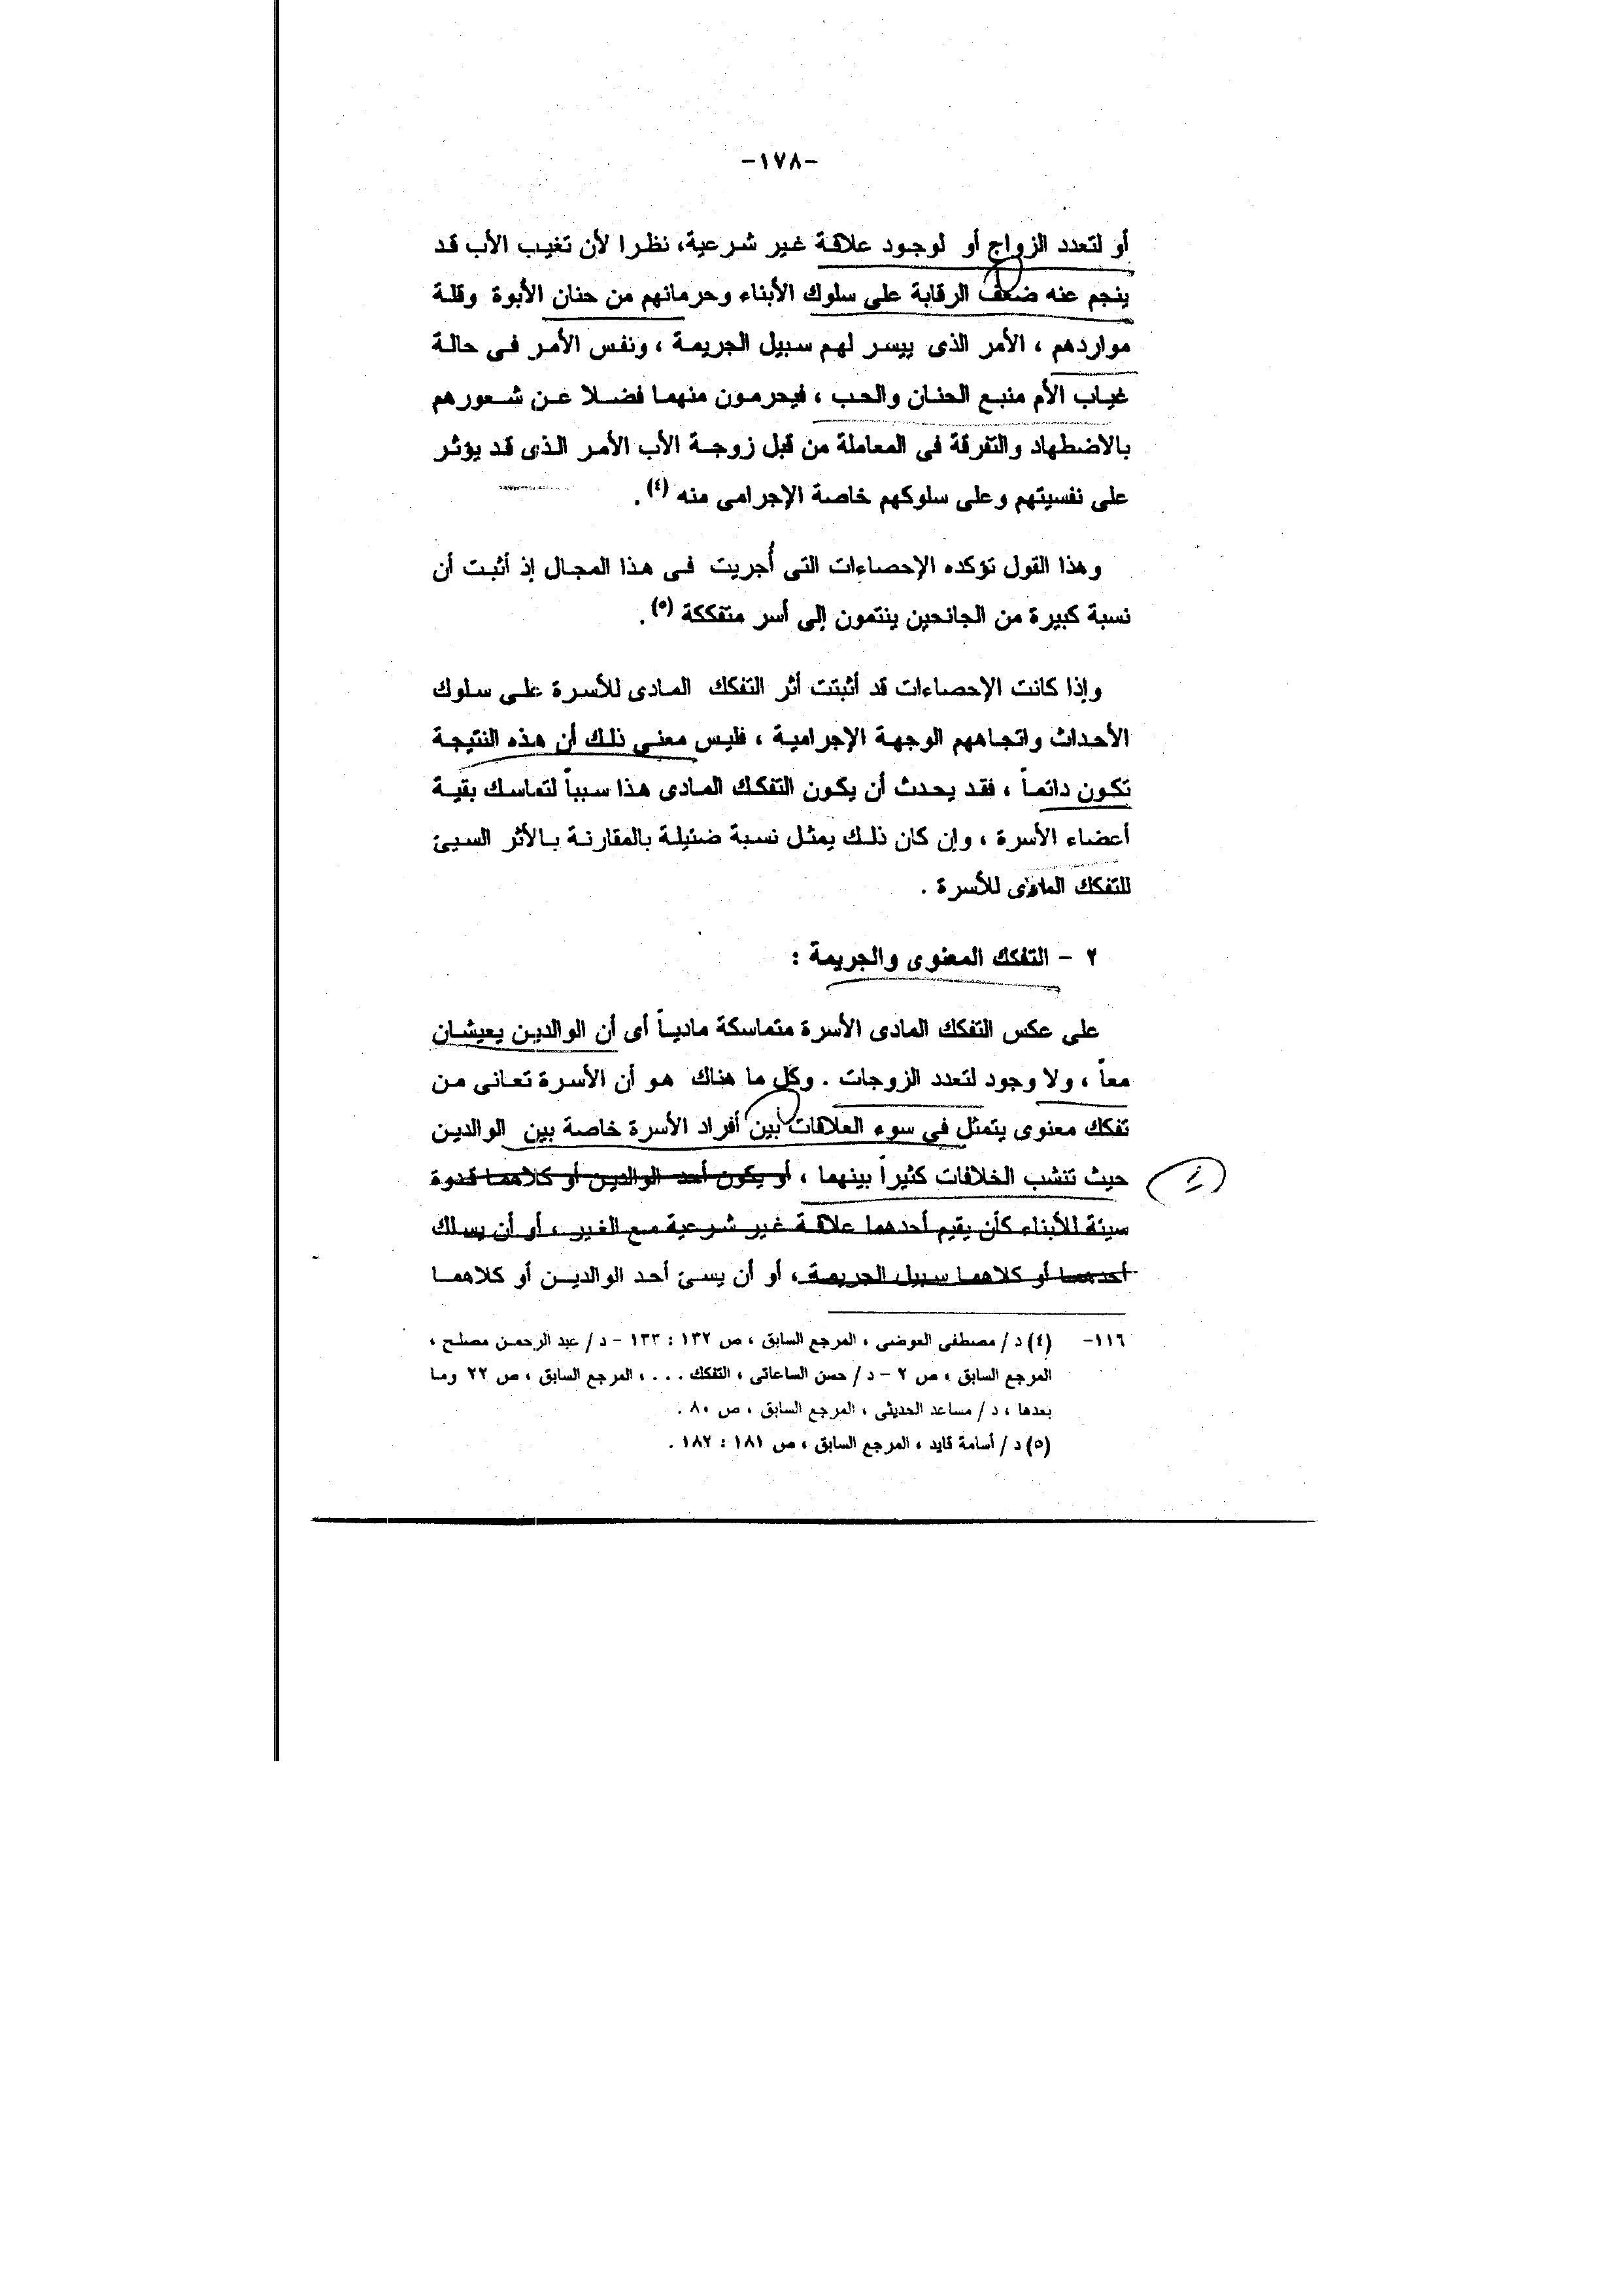 -١٧٨-
أو لتعدد الزواج أو لوجود علاقة غير شرعية، نظرا لأن تغيب الأب قد
ينجم عنه ضعف الرقابة على سلوك الأبناء وحرمانهم من حنان الأبوة وقلة
مواردهم ، الأمر الذى ييسر لهم سبيل الجريمة ، ونفس الأمر فى حالة
غياب الأم منبع الحنان والحب ، فيحرمون منهما فضلا عن شعورهم
بالاضطهاد والتفرقة فى المعاملة من قبل زوجة الأب الأمر الذى قد يؤثر
على نفسيتهم وعلى سلوكهم خاصة الإجرامى منه (٤) .
وهذا القول تؤكده الإحصاءات التى أُجريت فى هذا المجال إذ أثبت أن
نسبة كبيرة من الجانحين ينتمون إلى أسر متفككة (٥) .
وإذا كانت الإحصاءات قد أثبتت أثر التفكك المادى للأسرة على سلوك
الأحداث واتجاههم الوجهة الإجرامية ، فليس معنى ذلك أن هذه النتيجة
تكون دائماً ، فقد يحدث أن يكون التفكك المادى هذا سبباً لتماسك بقية
أعضاء الأسرة ، وإن كان ذلك يمثل نسبة ضئيلة بالمقارنة بالأثر السيئ
للتفكك المادى للأسرة .
٢ - التفكك المعنوى والجريمة :
على عكس التفكك المادى الأسرة متماسكة مادياً أى أن الوالدين يعيشان
معاً ، ولا وجود لتعدد الزوجات . وكل ما هناك هو أن الأسرة تعانى من
تفكك معنوى يتمثل في سوء العلاقات بين أفراد الأسرة خاصة بين الوالدين
حيث تنشب الخلافات كثيراً بينهما ، أو يكون أحد الوالدين أو كلاهما قدوة
سيئة للأبناء كأن يقيم أحدهما علاقة غير شرعية مع الغير ، أو أن يسلك
أحدهما أو كلاهما سبيل الجريمة ، أو أن يسئ أحد الوالدين أو كلاهما
١١٦- (٤) د / مصطفى العوضى ، المرجع السابق ، ص ١٣٢ : ١٣٣ - د / عبد الرحمن مصلح ،
المرجع السابق ، ص ٢ - د / حسن الساعاتى ، التفكك . . . ، المرجع السابق ، ص ٢٢ وما
بعدها ، د / مساعد الحديثى ، المرجع السابق ، ص ٨٠ .
(٥) د / أسامة قايد ، المرجع السابق ، ص ١٨١ : ١٨٢ .